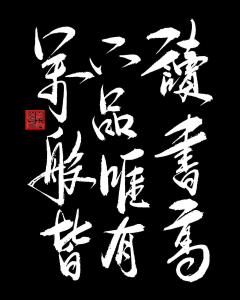 萬般皆
下品唯有
讀書高